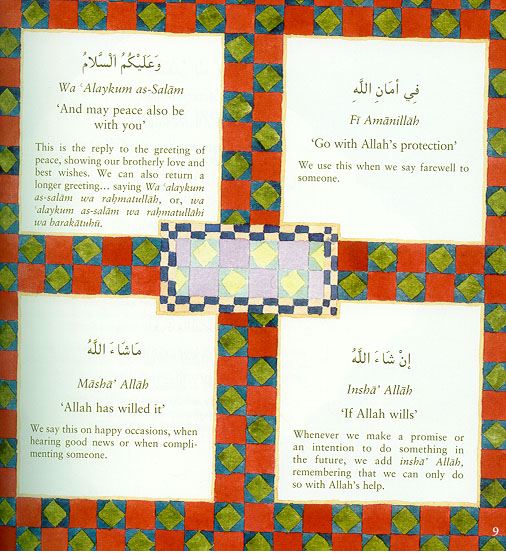 وَعَلَيْكُمُ اَلْسَّلَامُ
Wa ʿAlaykum as-Salām
‘And may peace also be
with you’
This is the reply to the greeting of
peace, showing our brotherly love and
best wishes. We can also return a
longer greeting... saying Wa ʿalaykum
as-salām wa raḥmatullāh, or, wa
ʿalaykum as-salām wa raḥmatullāhi
wa barakātuhū.
فِي أَمَانِ اللَّهِ
Fī Amānillāh
‘Go with Allah’s protection’
We use this when we say farewell to
someone.
مَاشَاءَ اللَّهُ
Māshā’ Allāh
‘Allah has willed it’
We say this on happy occasions, when
hearing good news or when compli-
menting someone.
إِنْ شَاءَ اللَّهُ
Inshā’ Allāh
‘If Allah wills’
Whenever we make a promise or
an intention to do something in
the future, we add inshā’ Allāh,
remembering that we can only do
so with Allah’s help.
9